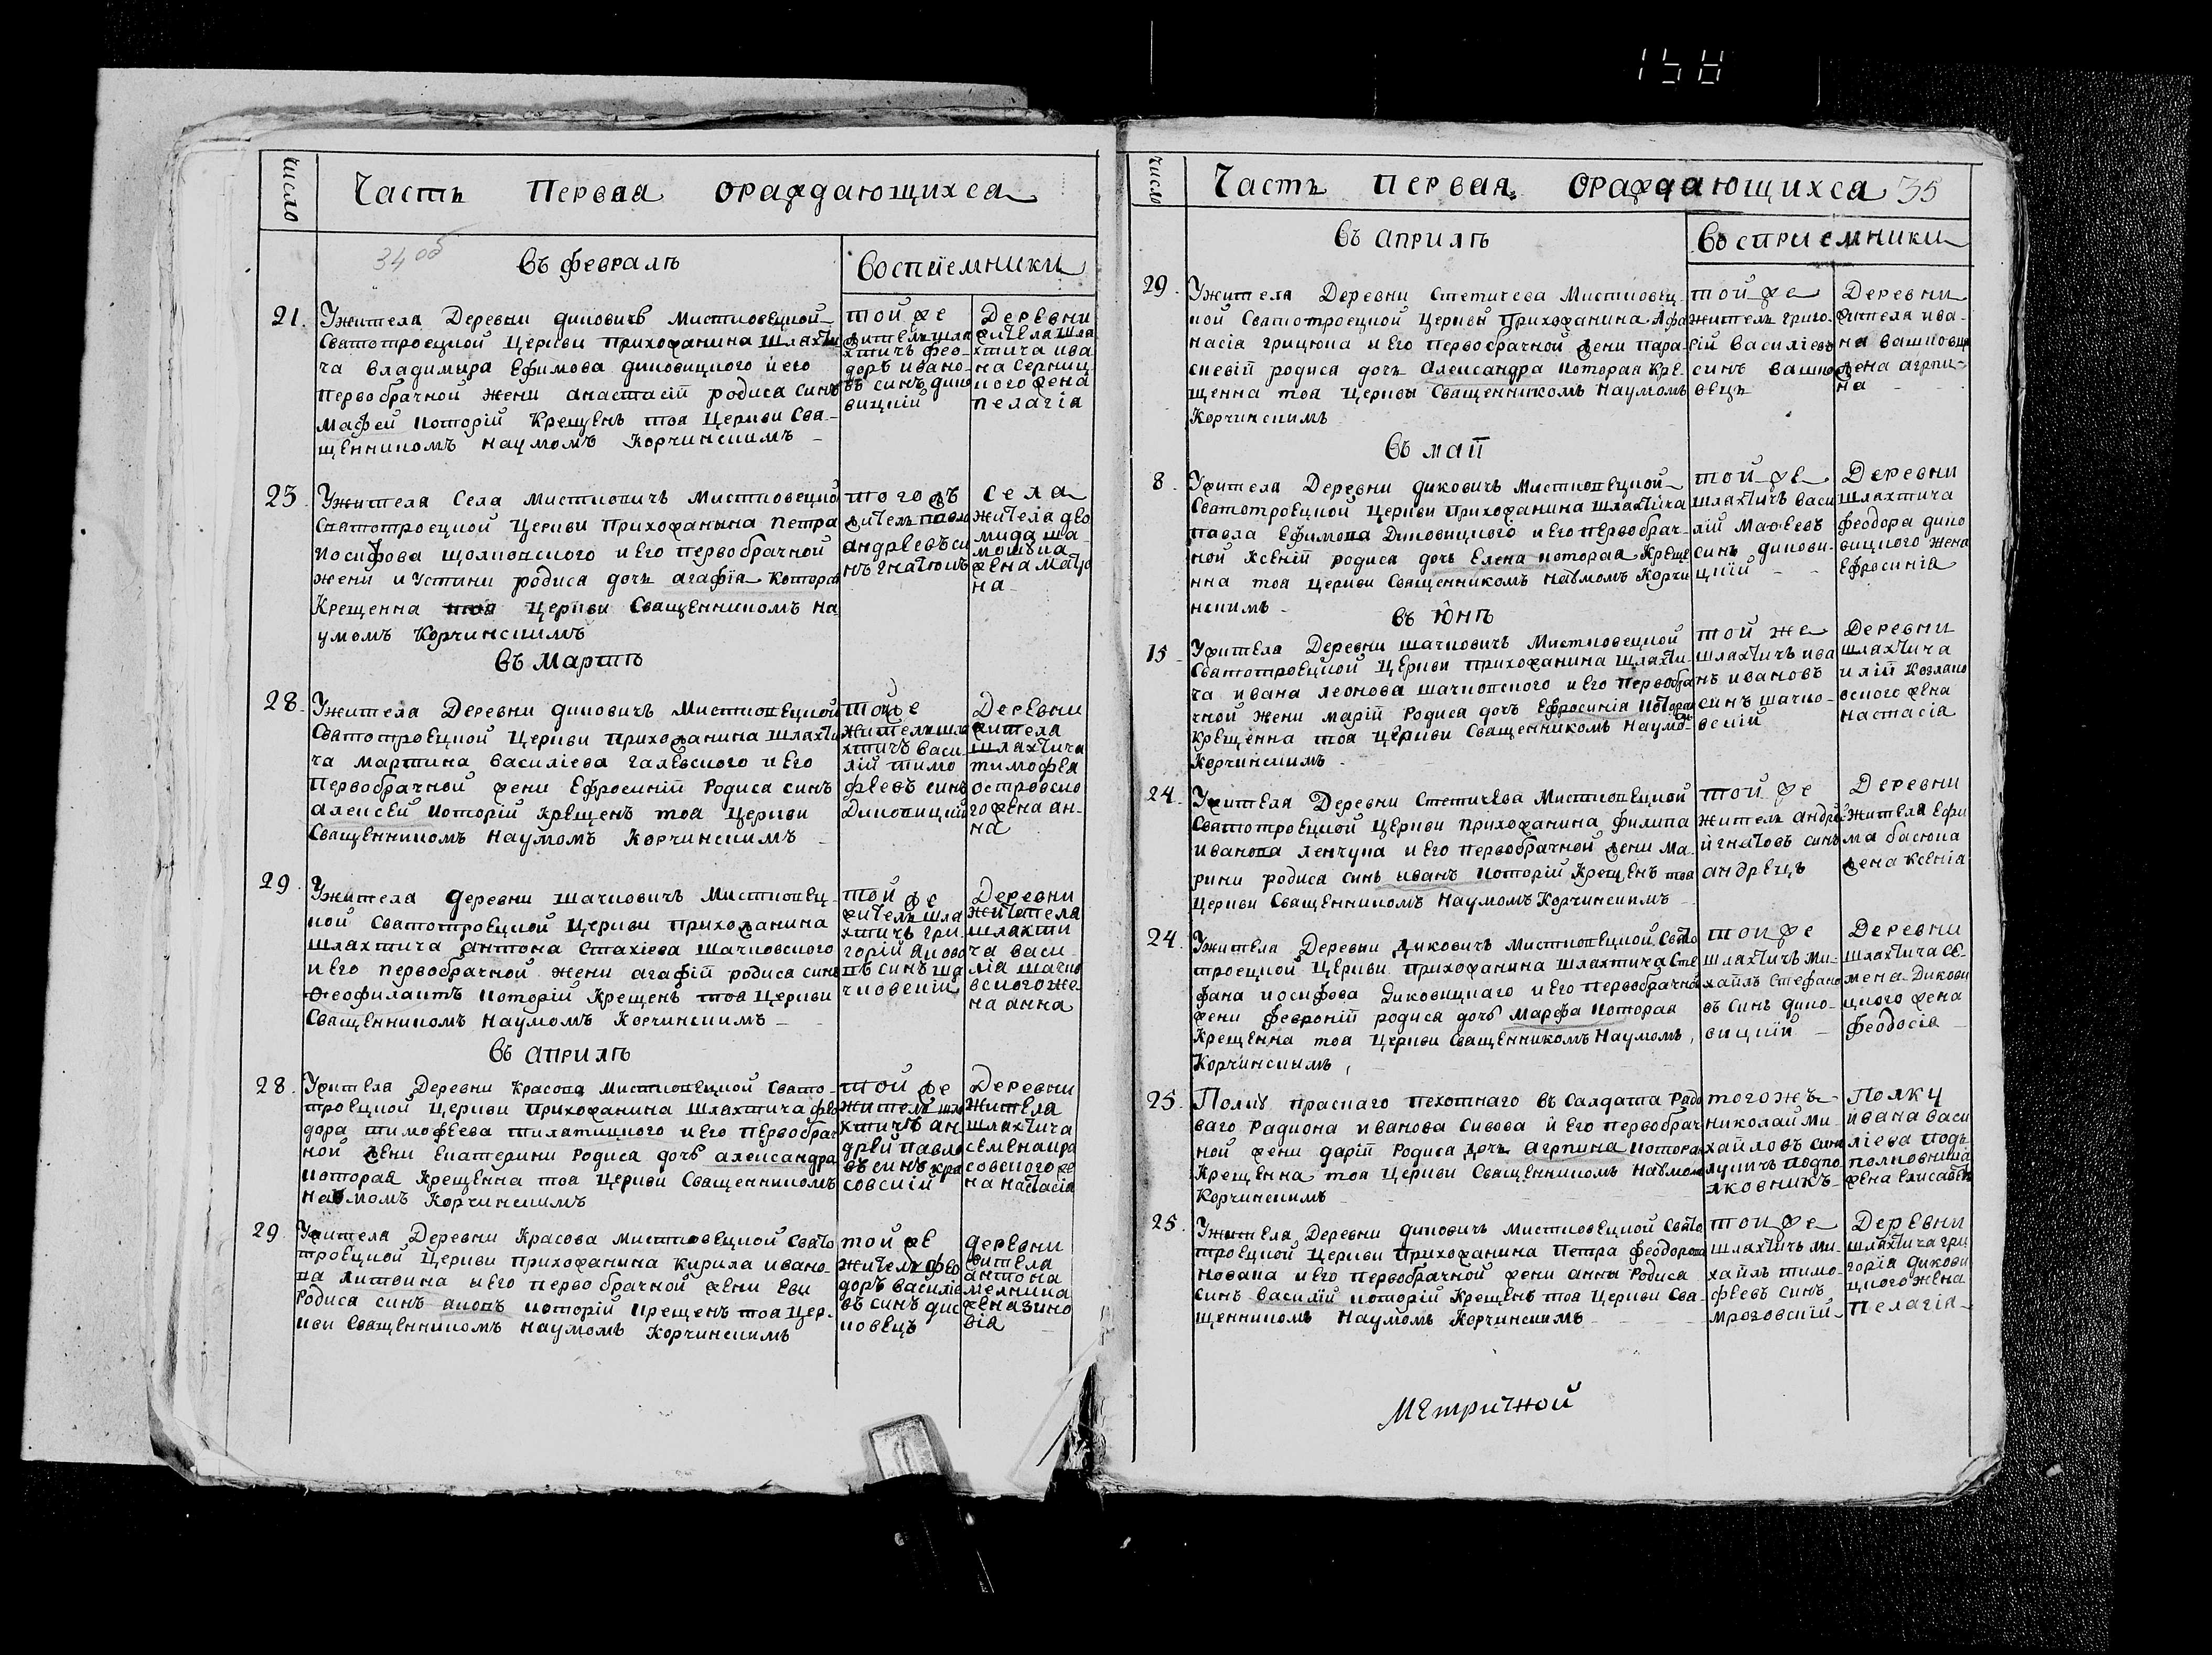 158
число
Часть Первая ораждающихса
34 об
въ февралѣ
Воспіемники
21.
Ужителa Деревни диковичъ Мистковецкой
Сватотроецкой Церкви Прихожанина Шлахти
ча Владимыра Ефимова диковицкого и его
Первобрачной жени анастасій родиса синъ
Мафей которій Крещенъ тоа Церкви Сва-
щенникомъ Наумомъ Корчинскимъ
той же
жителъ шла
хтичъ фео-
доръ ивано-
въ синъ дико
вицкій
Деревни
жителa шла
хтича ива
на Серниц
кого жена
пелагіа
23
Ужителa Села мистковичъ Мистковецко
Сватотроецкой Церкви Прихожанына Петра
иосифова щолковского и Его первобрачной
жени иУстини родиса дочъ агафіа Котора
Крещенна тоа Церкви Сващенникомъ На
умомъ Корчинскимъ
того жъ
жителъ павло
андреевъ си
нъ гнатюкъ
села
жителa део
мида ша-
мошика
жена Матро
на
въ Мартѣ
28.
Ужителa Деревни диковичъ Мистковецкой
Сватотроецкой Церкви Прихожанина Шлахти
ча Мартина Василіева галевского и Его
Первобрачной жени Ефросиній Родиса синъ
алексей которій Крещенъ тоа Церкви
Сващенникомъ Наумомъ Корчинскимъ
той же
жителъ шла
хтичъ васи-
лій тимо
феевъ синъ
Диковицкій
Деревни
жителa
шлахтича
тимофеа
островско
го жена ан-
на
29.
Ужителa деревни шачковичъ Мистковец-
кой Сватотроецкой Церкви Прихожанина
шлахтича антона Стахіева Шачковского
и Его первобрачной жени агафій родиса синъ
Феофилактъ которій Крещенъ тоа Церкви
Сващенникомъ Наумомъ Корчинскимъ
той же
жителъ шла
хтичъ гри-
горій Яково
въ синъ ша
чковскій
Деревни
житателa
шлахти
ча васи
ліа шачко
вского же-
на анна
въ априлѣ
28.
Ужителa Деревни Красова Мистковецкой Свато-
троецкой Церкви Прихожанина Шлахтича фео
дора тимофеева тилатицкого и Его Первобрач
ной жени Екатерини Родиса дочъ александра
которая Крещенна тоа Церкви Сващенникомъ
Наумомъ Корчинскимъ
той же
жителъ шла
хтичъ ан-
дрей павло
въ синъ кра
совскій
Деревни
Жителa
шлахтича
семена кра
совского же
на настасіа
29
Ужителa Деревни Красова Мистковецкой Свято
троецкой Церкви Прихожанина Кирила ивано-
ва литвина и Его перво брачной жени Еви
Родиса синъ аковъ которій крещенъ тоа Цер-
кви Сващенникомъ Наумомъ Корчинскимъ
той же
жителъ фео
доръ василіе
въ синъ дис
ковецъ
деревни
жителa
антона
мелника
жена зино
віа
число
Часть первая ораждающихса 35
въ априлѣ
Восприемники
29.
Ужителa Деревни Стетичева Мистковец-
кой Сватотроецкой Церквы Прихожанина Афа
насіа грицюка и Его Первобрачной жени пара-
скевій родиса дочъ Александра которая Кре-
щенна тоа Церквы Сващенникомъ Наумомъ
Корчинскимъ
той же
жителъ григо-
рій василіевъ
синъ вашко
вецъ
Деревни
жителa ива-
на вашковца
жена агрпи-
на
въ май
8.
Ужителa Деревни диковичъ Мистковецкой
Сватотроецкой Церкви Прихожанина Шлахтича
павла Ефимова Диковицкого и Его первобрач-
ной Ксеній родиса дочъ Елена которая Креще
нна тоа Церкви Сващенникомъ Наумомъ Корчи
нскимъ
той же
шлахтичъ васи
лій мафеевъ
синъ дикови-
цкій
Деревни
Шлахтича
феодора дико
вицкого жена
Ефросиніа
въ Юнѣ
15
Ужителa Деревни шачковичъ Мистковецкой
Сватотроецкой Церкви Прихожанина Шлахти-
ча ивана леонова шачковского и Его первобра
чной жени марій Родиса дочъ Ефросиніа котораа
Крещенна тоа Церкви Сващенникомъ Наумо-
Корчинскимъ
той же
шлахтичъ ива
нъ ивановъ
синъ шачко-
вскій
Деревни
шлахтича
илій Козлако
вского жена
настасіа
24.
Ужителa Деревни Стетичева Мистковецкой
Сватотроецкой Церкви Прихожанина филипа
иванова ленчука и Его первобрачной жени Ма
рини родиса синъ иванъ которій Крещенъ тоа
Церкви Сващенникомъ Наумомъ Корчинскимъ
той же
житель андре
й гнатовъ синъ
андрецъ
Деревни
Жителa Ефи
ма басюка
жена ксеніа
24.
Ужителa Деревни Диковичъ Мистковецкой Свато
троецкой Церкви Прихожанина шлахтича Сте
фана иосифова Диковицкаго и Его первобрачной
жени февроній родиса дочъ Марфа которая
Крещенна тоа Церкви Сващенникомъ Наумомъ
Корчинскимъ
той же
шлахтичъ Ми-
хайлъ Стефано
въ синъ дико-
вицкій
Деревни
шлахтича Се-
мена Дикови
цкого жена
феодосіа
25.
Полку праснаго пехотнаго въ Салдата Радо
ваго Радиона иванова Сивова й Его первобрач
ной жени дарій Родиса дочъ агрпина котора
Крещенна тоа Церкви Сващенникомъ Наумомъ
Корчинскимъ
того жъ
николай Ми-
хайловъ синъ
лукичъ подпо
лковникъ
Полку
ивана васи
ліева подъ
полковника
жена Елисавета
25.
Ужителa Деревни диковичъ Мистковецкой Свято
троецкой Церкви Прихожанина Петра феодорова
Новака и Его первобрачной жени анны Родиса
синъ Василій которій Крещенъ тоа Церкви Сва-
щенникомъ Наумомъ Корчинскимъ
той же
шлахтичъ ми-
хайлъ тимо-
феевъ синъ
мрозовскій
Деревни
шлахтича гри
горіа дикови
цкого жена
пелагіа
Метричной